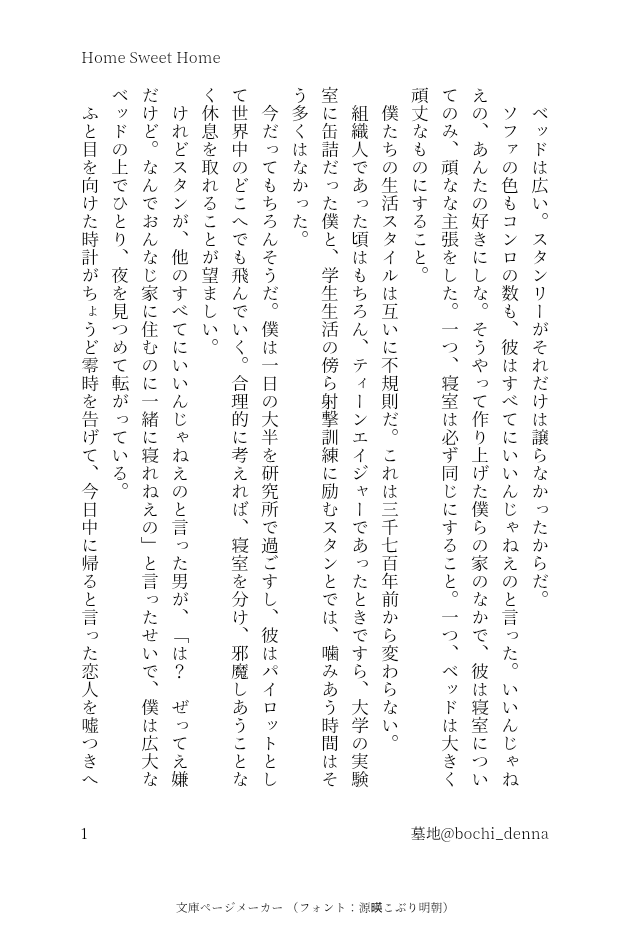 Home Sweet Home
　ベッドは広い。スタンリーがそれだけは譲らなかったからだ。
　ソファの色もコンロの数も、彼はすべてにいいんじゃねえのと言った。いいんじゃね
えの、あんたの好きにしな。そうやって作り上げた僕らの家のなかで、彼は寝室につい
てのみ、頑なな主張をした。一つ、寝室は必ず同じにすること。一つ、ベッドは大きく
頑丈なものにすること。
　僕たちの生活スタイルは互いに不規則だ。これは三千七百年前から変わらない。
　組織人であった頃はもちろん、ティーンエイジャーであったときですら、大学の実験
室に缶詰だった僕と、学生生活の傍ら射撃訓練に励むスタンとでは、噛みあう時間はそ
う多くはなかった。
　今だってもちろんそうだ。僕は一日の大半を研究所で過ごすし、彼はパイロットとし
て世界中のどこへでも飛んでいく。合理的に考えれば、寝室を分け、邪魔しあうことな
く休息を取れることが望ましい。
　けれどスタンが、他のすべてにいいんじゃねえのと言った男が、「は？　ぜってえ嫌
だけど。なんでおんなじ家に住むのに一緒に寝れねえの」と言ったせいで、僕は広大な
ベッドの上でひとり、夜を見つめて転がっている。
　ふと目を向けた時計がちょうど零時を告げて、今日中に帰ると言った恋人を嘘つきへ
1
墓地@bochi_denna
文庫ページメーカー（フォント：源暎こぶり明朝）